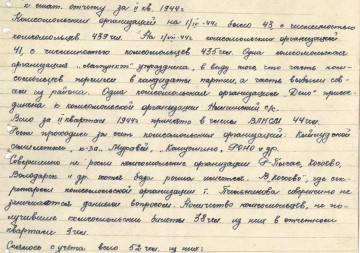 к стат. отчету за II кв. 1944г.
Комсомольских организаций на 1/IV-44г. было 43, с численностью
комсомольцев 439 чел. На 1/VII-44г. комсомольских организаций
41, с численностью комсомольцев 435 чел. Одна комсомольская
организация упразднена, в виду того что часть ком-
сомольцев перешли в кандидаты партии, а часть выбыли совсем
из района. Одна комсомольская организация присое-
динена к комсомольской организации
Всего за II квартал 1944г принято в члены ВЛКСМ 44 чел.
Рост проходил за счет комсомольских организаций
к-за. "Муравей", "Коммунизм", РОНО и др.
Совершенно не росли комсомольские организации
Володарск и др. хотя база роста имеется. В где сек-
ретарем комсомольской организации т. совершенно не
занимаются данным вопросом. Количество комсомольцев, не по-
лучившие комсомольские билеты 38 чел. из них в отчетном
квартале 3 чел.
Снялось с учета всего 52 чел. из них: